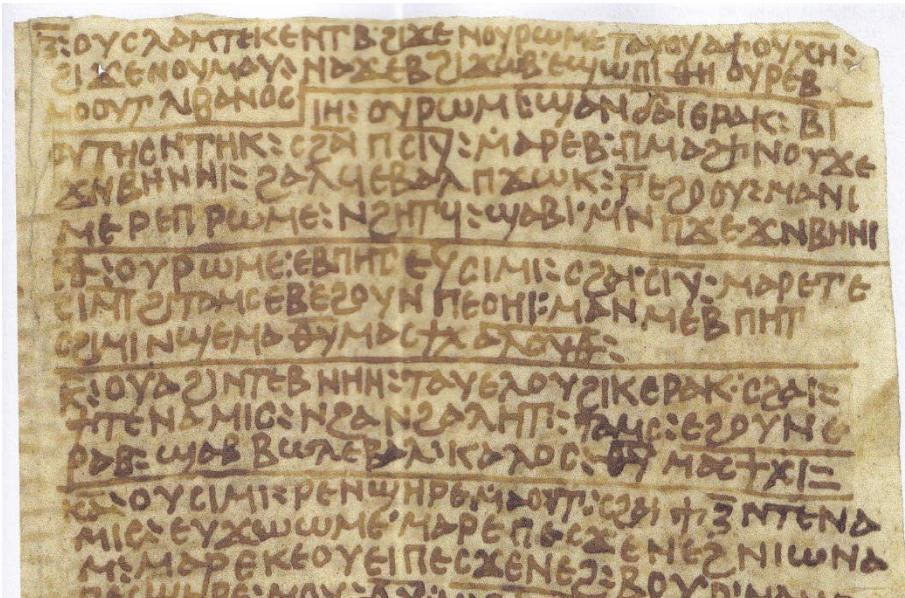 ⲓ̅ⲍ̅: ⲟⲩⲥⲗⲁⲙⲧⲉⲕⲉⲛⲧⲃ: ϩⲓϫⲉⲛⲟⲩⲣⲱⲙⲉ ⲧⲁⲩⲟⲩⲁϯⲟⲩⲭⲏ:
ϩⲓϫⲉⲛⲟⲩⲙⲁⲩ: ⲛⲁϫⲉⲃϩⲓϫⲱⲃ ⲉϣⲱⲡⲓ ⲟⲩⲣⲉⲃ
ⲙⲟⲟⲩⲧ ⲗⲓⲃⲁⲛⲟⲥ
ⲓⲏ: ⲟⲩⲣⲱⲙⲉ: ϣⲁⲛ ⲉⲣⲁⲕ: ⲃⲓ
ⲟⲩⲧⲏⲥⲛⲧⲏⲕ: ⲥϩⲁⲓ ⲡⲥⲓⲩ: ⲙⲁⲣⲉⲃ: ⲡⲙⲁϩϯⲛⲟⲩϫⲉ
ϫⲛⲃⲏⲛⲛⲓ: ϩⲁⲗϥⲉⲃⲁⲗ ⲡϫⲱⲕ: ⲡⲉϩⲟⲟⲩ: ⲙⲁⲛⲓ
ⲙⲉⲣⲉⲡⲣⲱⲙⲉ: ⲛϩⲏⲧϥ: ϣⲁⲃⲓ: ⲙⲛ ⲡϫⲉϫⲛⲃⲏⲛⲓ
ⲓ̅ⲑ̅: ⲟⲩⲣⲱⲙⲉ: ⲉⲃⲡⲏⲧ ⲉⲩⲥⲓⲙⲓ: ⲥϩⲁⲓ: ⲥⲓⲩ: ⲙⲁⲣⲉⲧⲉ
ⲥⲓⲙⲓ ϩⲓⲧⲁⲙⲥⲉⲃⲉϩⲟⲩⲛ ⲡⲉⲥⲏⲓ: ⲙⲁⲛ ⲙⲉⲃⲡⲏⲧ
ⲥⲓⲙⲓ ⲛϣⲉⲙⲁ ⲑⲩⲙⲁⲥϯⲭ ⲁⲗⲟⲩⲑ:
ⲕ̅: ⲟⲩⲁϩⲓⲛⲧⲉⲃⲛⲏⲏ: ⲧⲁⲩⲉⲗⲟⲩϩⲓⲕⲉⲣⲁⲕ: ⲥϩⲁⲓ:
ϯⲧⲉⲛⲁⲙⲓⲥ: ⲛϩⲁⲛϩⲁⲗⲏⲧ: ⲧⲁⲙⲥ: ⲉϩⲟⲩⲛ ⲉ
ⲣⲁⲃ: ϣⲁⲃ ⲃⲱⲗⲉⲃⲁⲗ: ⲕⲁⲗⲟⲥ: ⲑⲩⲙⲁⲥϯⲭⲓ:
ⲕ̅ⲁ̅: ⲟⲩⲥⲓⲙⲓ: ⲣⲉⲛϣⲏⲣⲉ ⲙⲁⲟⲩⲧ: ⲥϩⲁⲓ ϯ ⲍ̅ ⲛⲧⲉⲛⲁ
ⲙⲓⲥ: ⲉⲩϫⲱⲱⲙⲉ: ⲙⲁⲣⲉⲡⲉⲥϫⲉⲛⲉϩ ⲛⲓⲱⲛⲁ
ⲙ: ⲙⲁⲣⲉⲕⲉⲟⲩⲉⲓ ⲡⲉⲥϫⲉⲛⲉϩ: